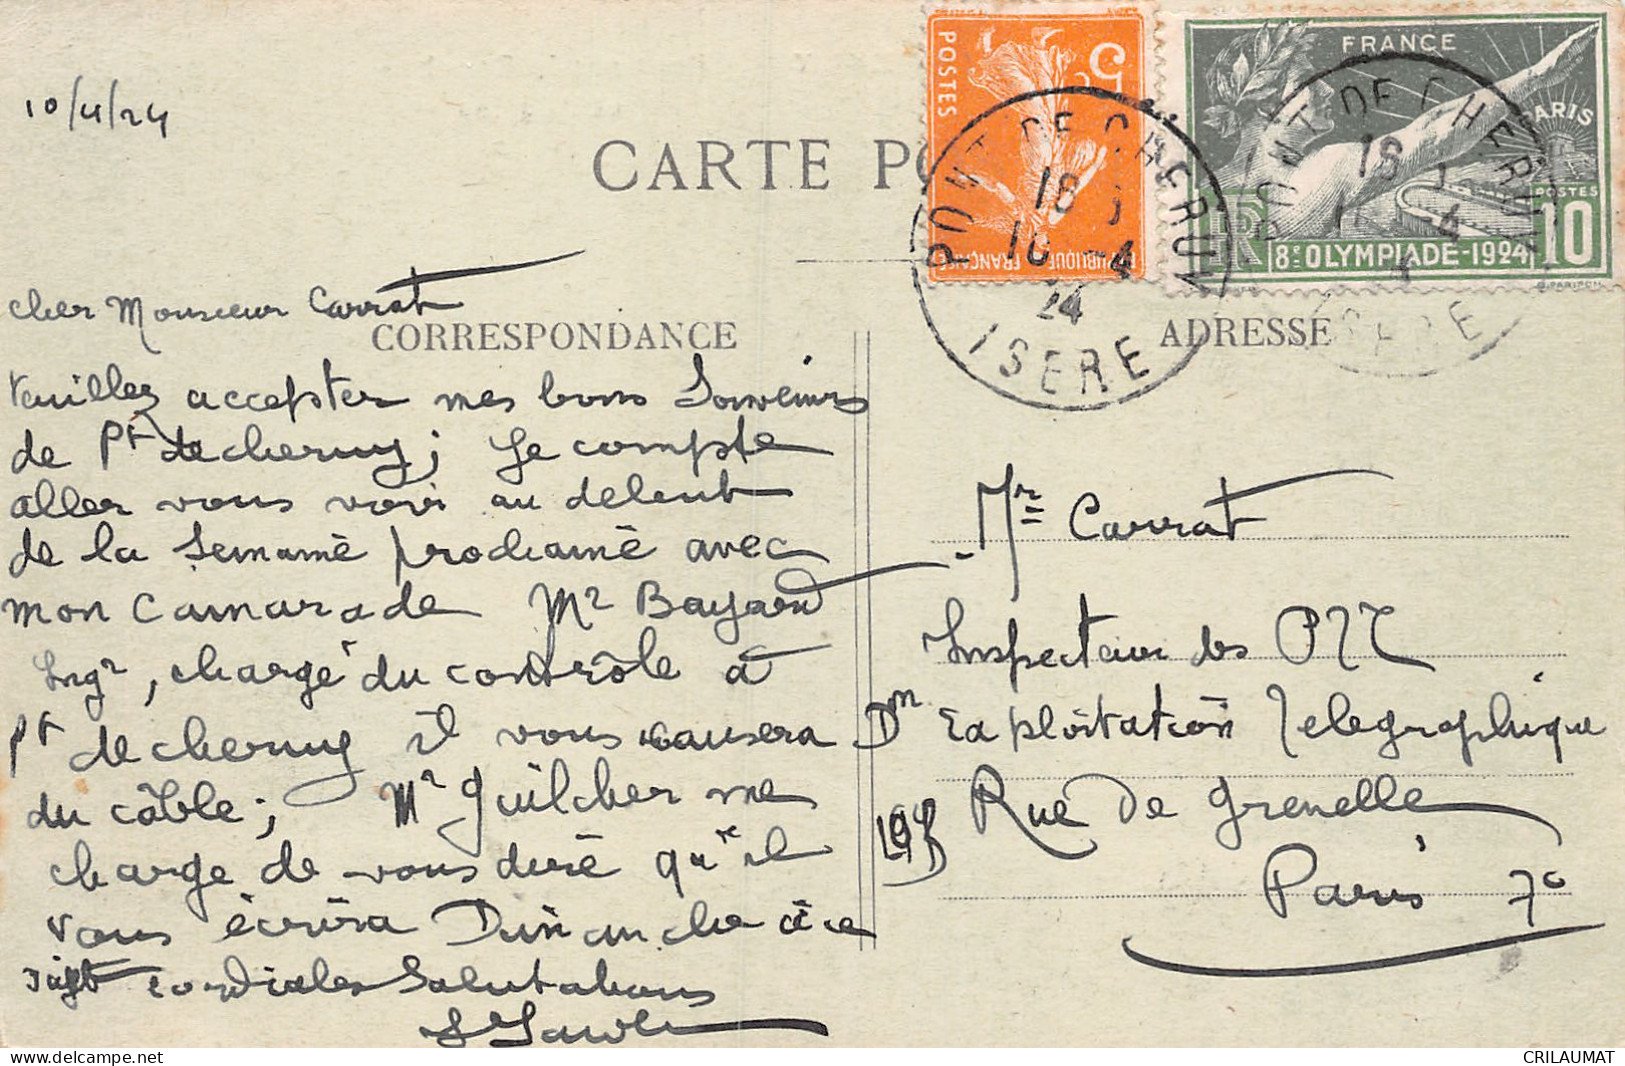 10/4/24
CARTE PO
POSTES
5 c.
REPUBLIQUE FRANÇAISE
PONT DE CHERUY
18
10 -4
24
ISERE
FRANCE
PARIS
POSTES
RF
8e OLYMPIADE-1924
10
PONT DE CHERUY
18
-4
ISERE
CORRESPONDANCE
ADRESSE
Cher Monsieur Carrat
Veuillez accepter mes bons Souvenirs
de Pt de Cheruy; Je compte
aller vous voir au début
de la Semaine prochaine avec
mon Camarade Mr Bayard
Ingr, chargé du contrôle à
Pt de Cheruy il vous causera
du câble; Mr Guilcher me
charge de vous dire qu'il
vous écrira Dimanche
cordiales Salutations
Mr Carrat
Inspecteur des PTT
Don Exploitation Telegraphique
Rue de Grenelle
Paris 7e
CRILAUMAT